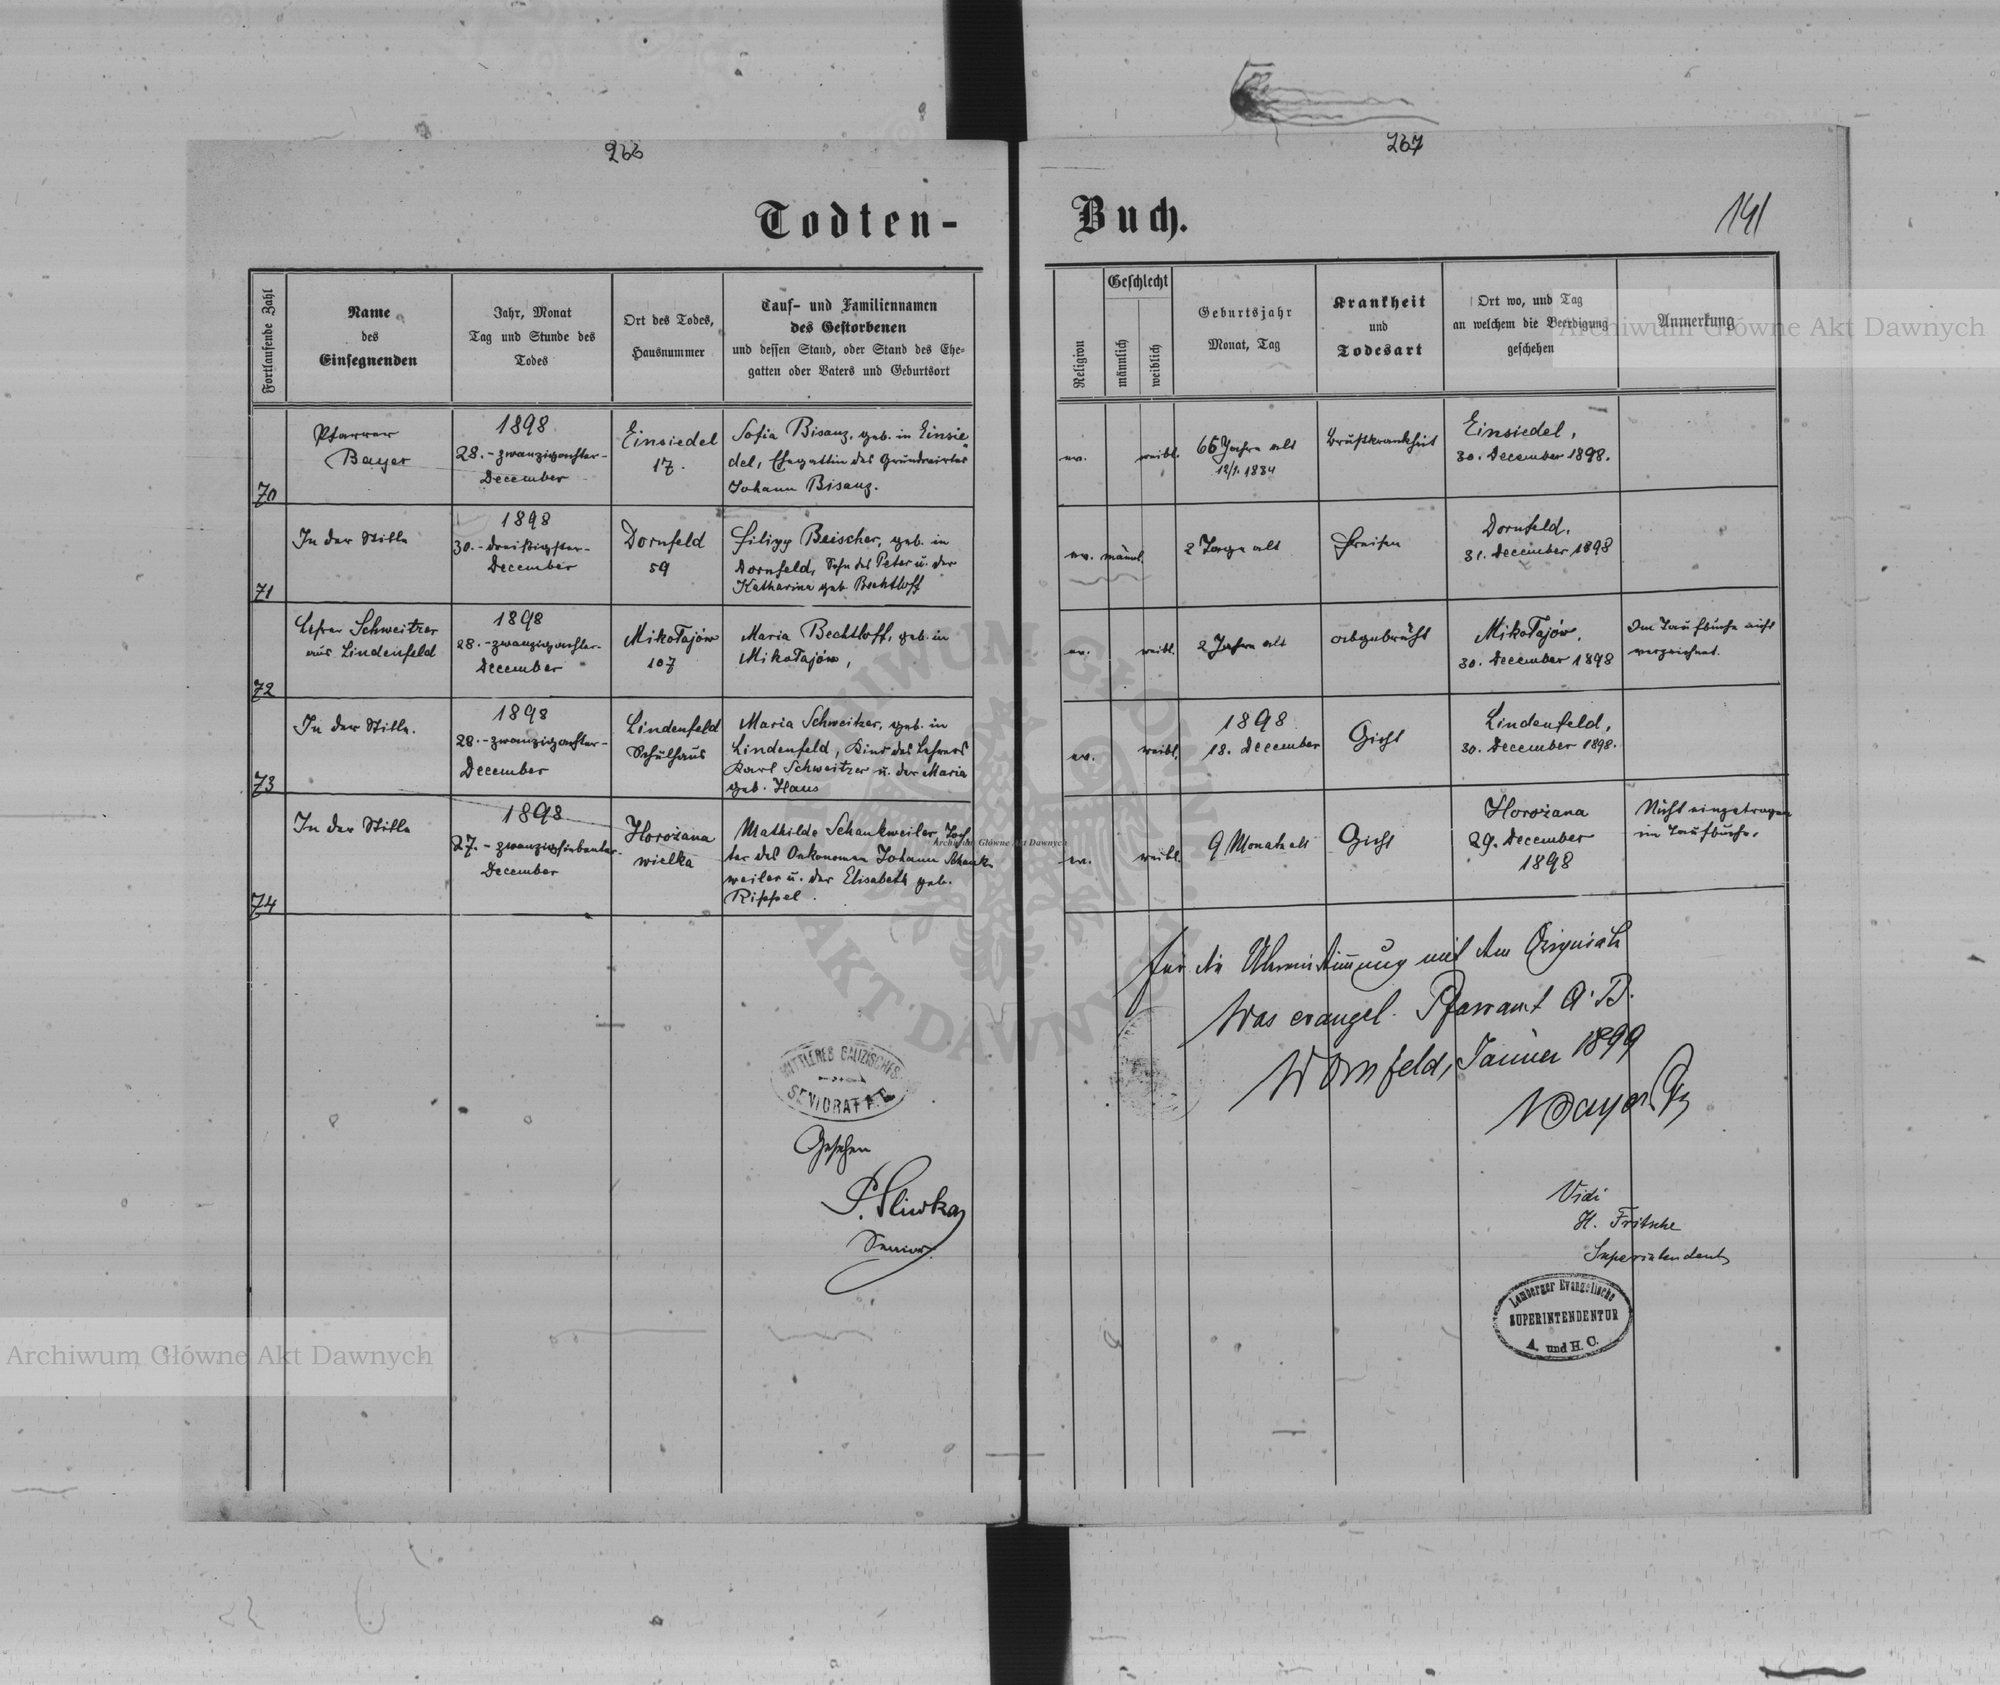 266
267
Todten-
Buch.
141
Fortlaufende Zahl
Name
des
Einsegnenden
Jahr, Monat
Tag und Stunde des
Todes
Ort des Todes,
Hausnummer
Tauf- und Familiennamen
des Gestorbenen
und dessen Stand, oder Stand des Ehe-
gatten oder Vaters und Geburtsort
Religion
Geschlecht
männlich
weiblich
Geburtsjahr
Monat, Tag
Krankheit
und
Todesart
Ort wo, und Tag
an welchem die Beerdigung
geschehen
Anmerkung
70
Pfarrer
Bayer
1898
28.-zwanzigachter-
December
Einsiedel
17.
Sofia Bisanz, geb. in Einsie-
del, Ehegattin des Grundwirtes
Johann Bisanz.
ev.
weibl.
65 Jahre alt
12/1. 1834
Brustkrankheit
Einsiedel,
30. December 1898.
71
In der Stille
1898
30.-dreißigster-
December
Dornfeld
59
Filipp Beischer, geb. in
Dornfeld, Sohn des Peter u. der
Katharina geb. Bechtloff
ev.
männl.
2 Tage alt
Fraisen
Dornfeld,
31. December 1898
72
Lehrer Schweitzer
aus Lindenfeld
1898
28.-zwanzigachter-
December
Mikołajów
107
Maria Bechtloff, geb. in
Mikołajów,
ev.
weibl.
2 Jahre alt
abgebrüht
Mikołajów,
30. December 1898
Im Taufbuche nicht
verzeichnet.
73
In der Stille.
1898
28.-zwanzigachter-
December
Lindenfeld
Schulhaus
Maria Schweitzer, geb. in
Lindenfeld, Kind des Lehrers
Karl Schweitzer u. der Maria
geb. Haus
ev.
weibl.
1898
18. December
Gicht
Lindenfeld,
30. December 1898.
74
In der Stille
1898
27.-zwanzigsiebenter-
December
Horożana
wielka
Mathilde Schankweiler, Toch-
ter des Oekonomen Johann Schank-
weiler u. der Elisabeth geb.
Rippel.
ev.
weibl.
9 Monate alt
Gicht
Horożana
29. December
1898
Nicht eingetragen
im Taufbuche.
Für die Übereinstimmung mit dem Originale
Das evangel. Pfarramt A. B.
Dornfeld, Jänner 1899
Bayer
MITTLERES GALIZISCHES
SENIORAT A. B.
Gesehen
P. Sliwka
Senior.
Vidi
H. Fritsche
Superintendent
Lemberger Evangelische
SUPERINTENDENTUR
A. und H. C.
Archiwum Główne Akt Dawnych
Archiwum Główne Akt Dawnych
Archiwum Główne Akt Dawnych
ARCHIWUM GŁÓWNE
AKT DAWNYCH